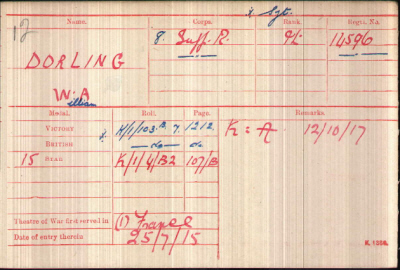 12
Name. Corps. Rank. Regtl. No.
DORLING 8. Suff. R. Sjt. 14596
W. A
William
Medal. Roll. Page. Remarks.
VICTORY K/1/103.B.7. 1212 K: A 12/10/17
BRITISH — do — do
15 STAR K/1/4/B2 107/B
Theatre of War first served in (1) France
Date of entry therein 25/7/15
K. 1380.